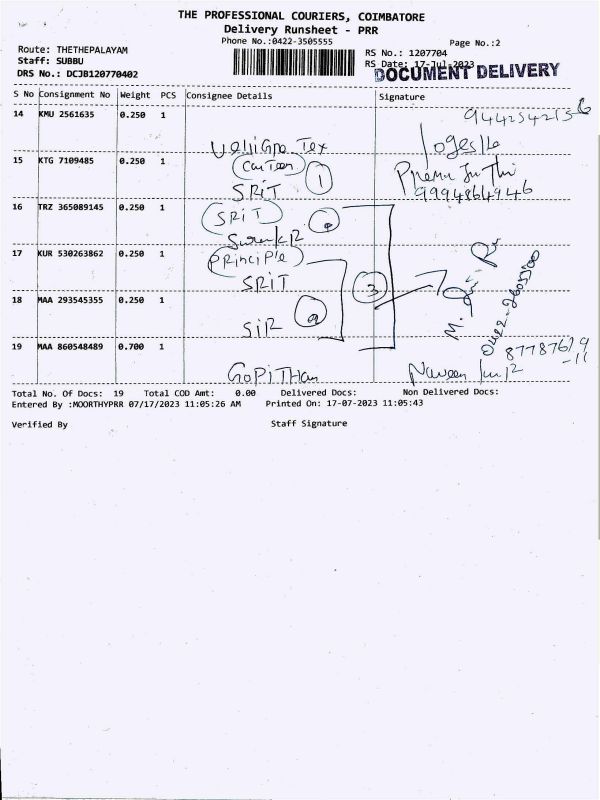 THE PROFESSIONAL COURIERS, COIMBATORE
Delivery Runsheet - PRR
Phone No.:0422-3505555
Page No.:2
Route: THETHEPALAYAM
RS No.: 1207704
Staff: SUBBU
RS Date: 17-Jul-2023
DRS No.: DCJB120770402
DOCUMENT DELIVERY
S No Consignment No Weight PCS Consignee Details Signature
14 KMU 2561635 0.250 1
Tex
15 KTG 7109485 0.250 1
1
SRiT
9994864946
16 TRZ 365089145 0.250 1
SRiT
17 KUR 530263862 0.250 1
PRinciPle
SRiT
3
18 MAA 293545355 0.250 1
SiR
19 MAA 860548489 0.700 1
GoPiTHan
Naveen
Total No. Of Docs: 19 Total COD Amt: 0.00 Delivered Docs: Non Delivered Docs:
Entered By :MOORTHYPRR 07/17/2023 11:05:26 AM Printed On: 17-07-2023 11:05:43
Verified By Staff Signature